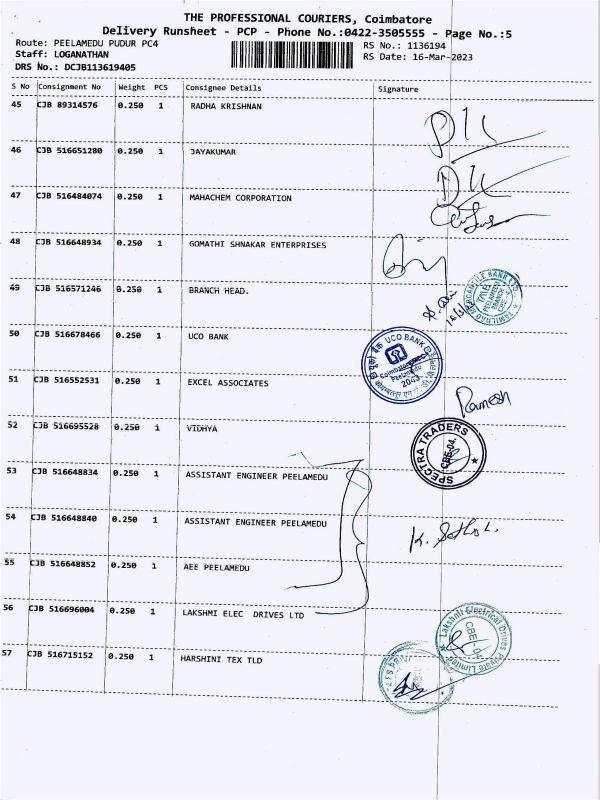 THE PROFESSIONAL COURIERS, Coimbatore
Delivery Runsheet - PCP - Phone No.:0422-3505555 - Page No.:5
Route: PEELAMEDU PUDUR PC4
RS No.: 1136194
Staff: LOGANATHAN
RS Date: 16-Mar-2023
DRS No.: DCJB113619405
S No Consignment No Weight PCS Consignee Details Signature
45 CJB 89314576 0.250 1 RADHA KRISHNAN
46 CJB 516651280 0.250 1 JAYAKUMAR
47 CJB 516484074 0.250 1 MAHACHEM CORPORATION
48 CJB 516648934 0.250 1 GOMATHI SHNAKAR ENTERPRISES
49 CJB 516571246 0.250 1 BRANCH HEAD.
50 CJB 516678466 0.250 1 UCO BANK
UCO BANK
Peelamedu
2043
51 CJB 516552531 0.250 1 EXCEL ASSOCIATES
Ramesh
52 CJB 516695528 0.250 1 VIDHYA
SPECTRA TRADERS
CBE-04.
53 CJB 516648834 0.250 1 ASSISTANT ENGINEER PEELAMEDU
54 CJB 516648840 0.250 1 ASSISTANT ENGINEER PEELAMEDU
55 CJB 516648852 0.250 1 AEE PEELAMEDU
56 CJB 516696004 0.250 1 LAKSHMI ELEC DRIVES LTD
Lakshmi Electrical Drives Private Limited
CBE-04
57 CJB 516715152 0.250 1 HARSHINI TEX TLD